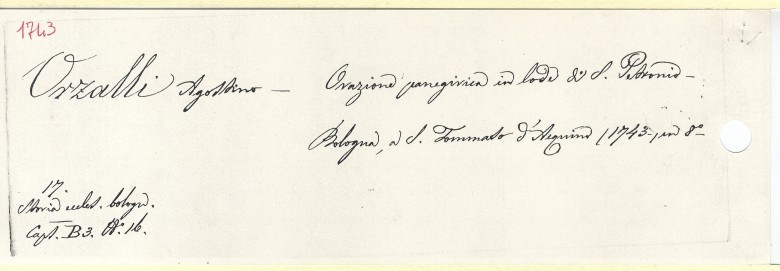 1743
Orzalli Agostino — Orazione panegirica in lode di S. Petronio —
Bologna, a S. Tommaso d'Aequino (1743-, in 8°
17.
Storia eccles. bologn.
Caps. B3. N° 16.